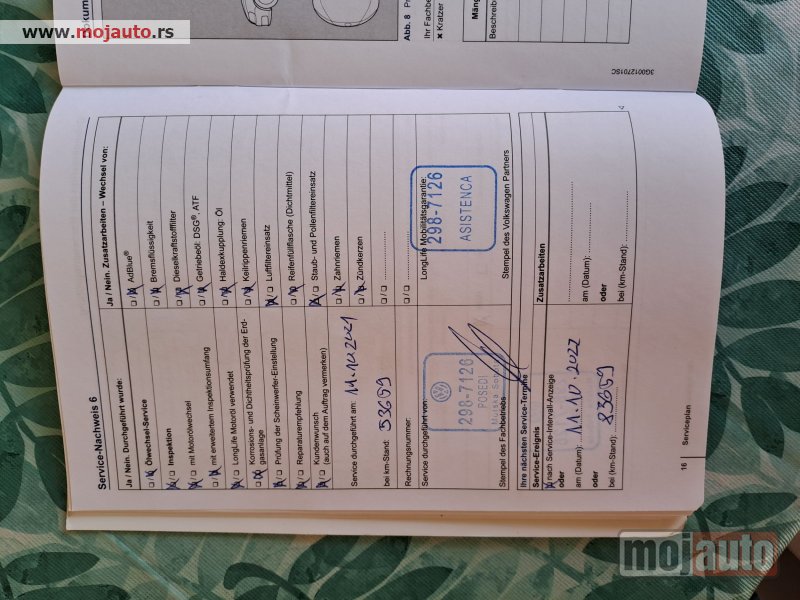 www.mojauto.rs
Abb. 8
Ihr Fachbe
× Kratzer
Män
Beschreibe
3G0012701SC
Service-Nachweis 6
Ja / Nein. Durchgeführt wurde:
Ölwechsel-Service
Inspektion
mit Motorölwechsel
mit erweitertem Inspektionsumfang
LongLife Motoröl verwendet
Korrosions- und Dichtheitsprüfung der Erd-
gasanlage
Prüfung der Scheinwerfer-Einstellung
Reparaturempfehlung
Kundenwunsch
(auch auf dem Auftrag vermerken)
Service durchgeführt am: 11.10.2021
bei km-Stand: 53659
Rechnungsnummer:
Service durchgeführt von:
298-7126
POSEDI
Stempel des Fachbetriebs
Ja / Nein. Zusatzarbeiten – Wechsel von:
AdBlue®
Bremsflüssigkeit
Dieselkraftstofffilter
Getriebeöl: DSG®, ATF
Haldexkupplung: Öl
Keilrippenriemen
Luftfiltereinsatz
Reifenfüllflasche (Dichtmittel)
Staub- und Pollenfiltereinsatz
Zahnriemen
Zündkerzen
LongLife Mobilitätsgarantie:
298-7126
ASISTENCA
Stempel des Volkswagen Partners
Ihre nächsten Service-Termine
Service-Ereignis
nach Service-Intervall-Anzeige
oder
am (Datum): 11.10.2022
oder
bei (km-Stand): 83659
Zusatzarbeiten
am (Datum):
oder
bei (km-Stand):
16
Serviceplan
mojauto